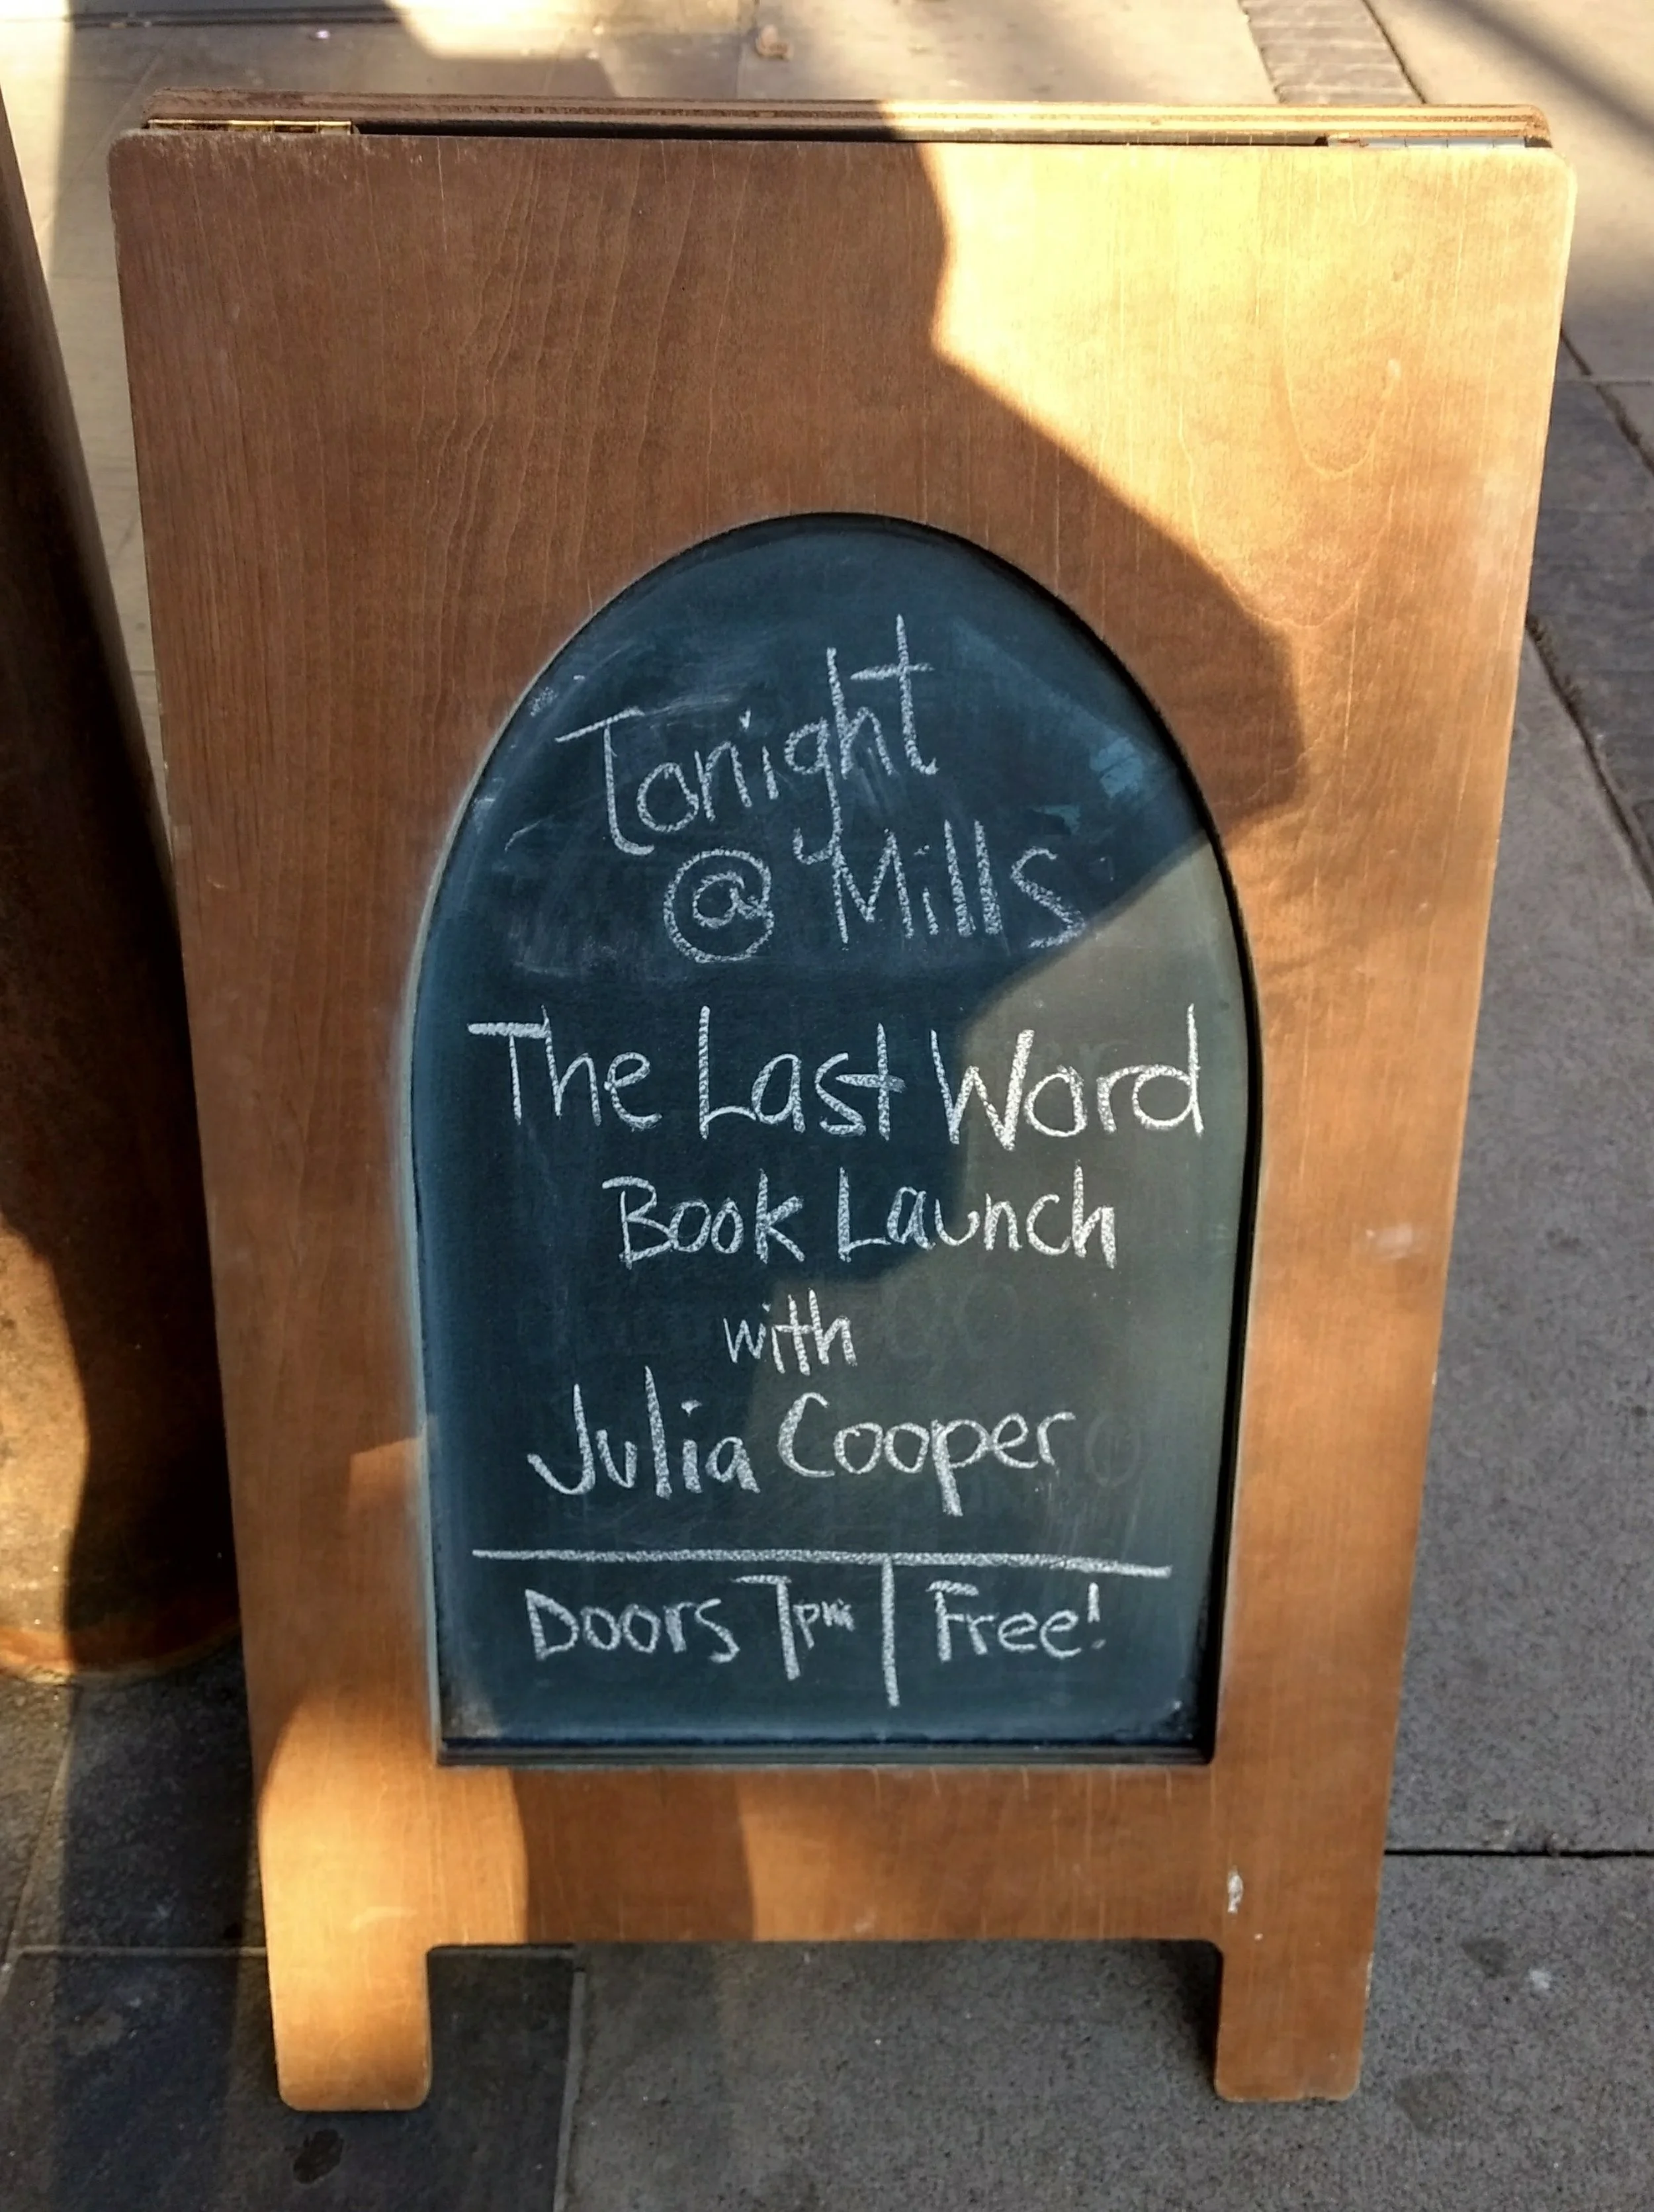 Tonight
@ Mills
The Last Word
Book Launch
with
Julia Cooper
Doors 7pm | Free!